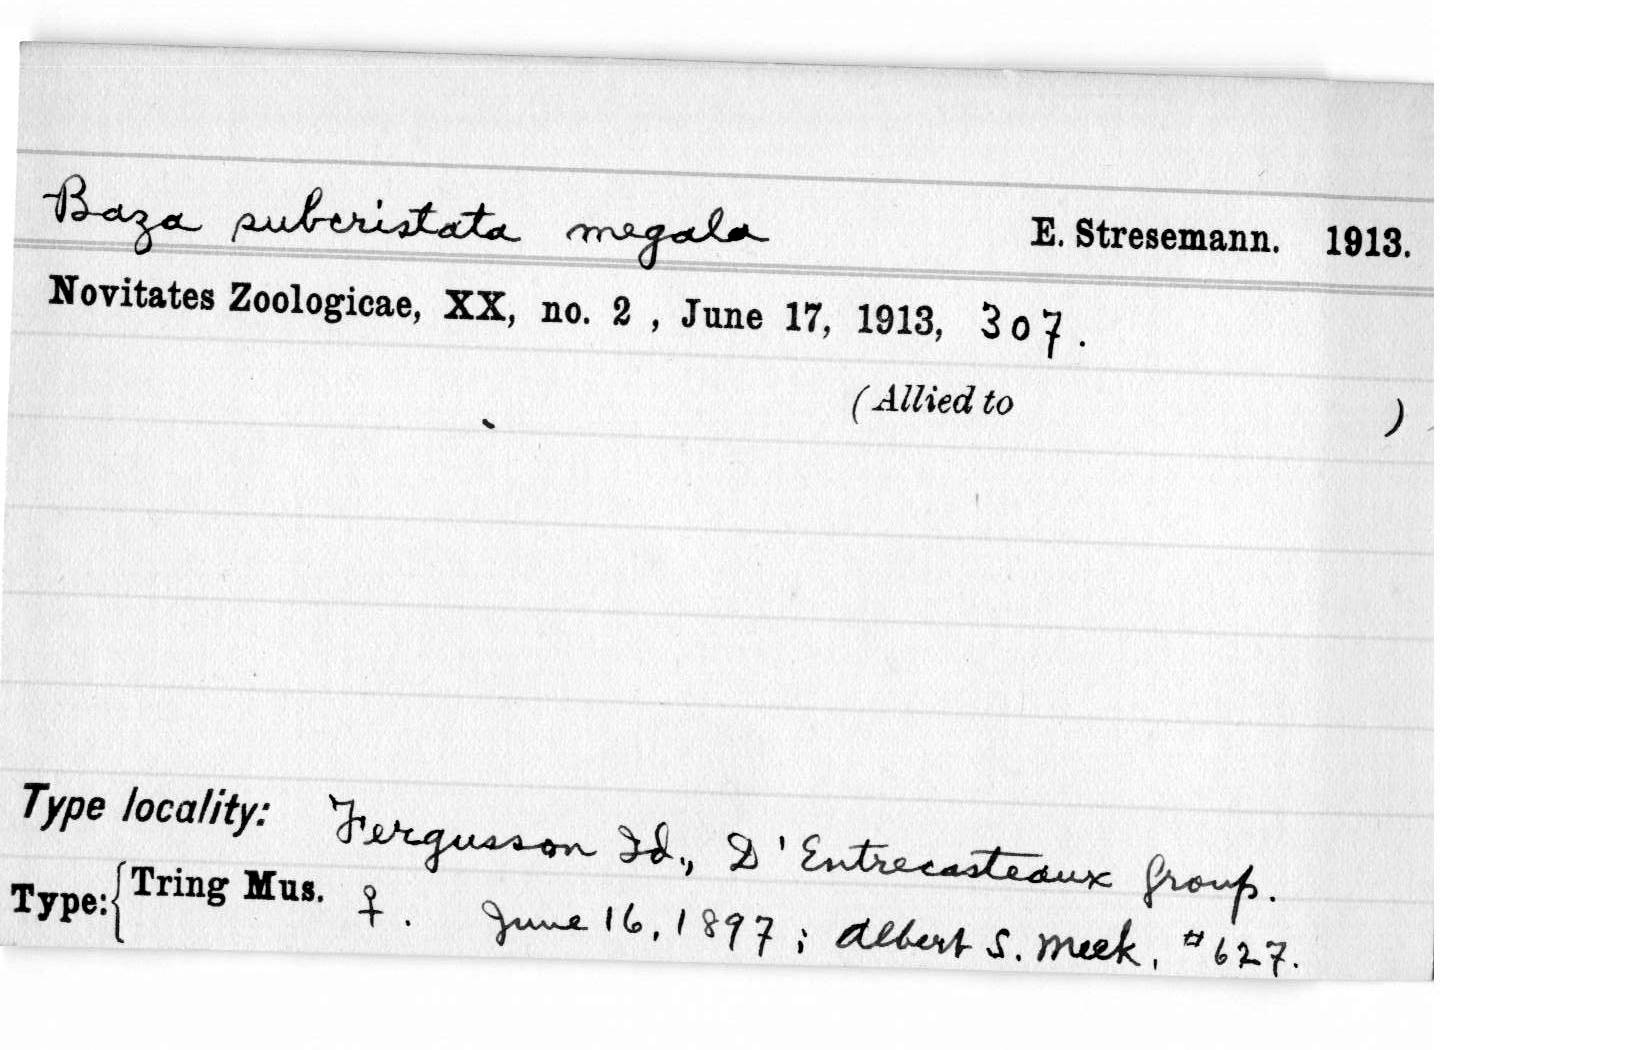 Baza subcristata megala E. Stresemann. 1913.
Novitates Zoologicae, XX, no. 2 , June 17, 1913, 307.
(Allied to )
Type locality: Fergusson Id., D'Entrecasteaux Group.
Type: { Tring Mus. ♀. June 16, 1897 ; Albert S. Meek, #627.